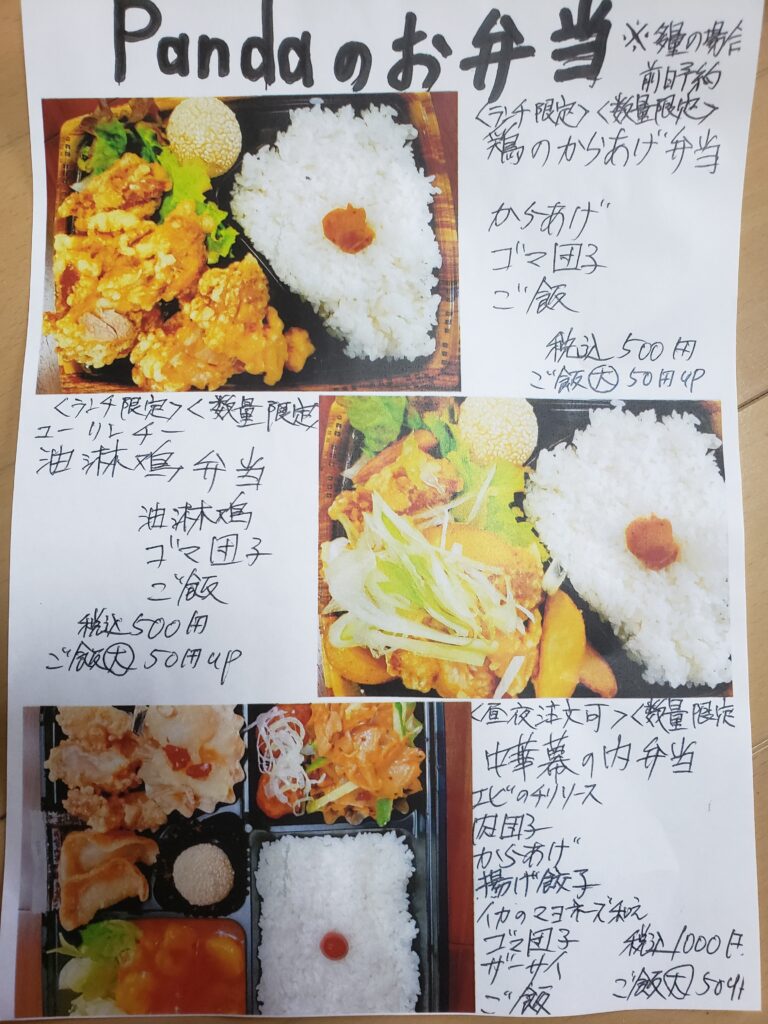 Pandaのお弁当
※多量の場合
前日予約
<ランチ限定><数量限定>
鶏のからあげ弁当
からあげ
ゴマ団子
ご飯
税込500円
ご飯大50円up
<ランチ限定><数量限定
ユーリンチー
油淋鶏弁当
油淋鶏
ゴマ団子
ご飯
税込500円
ご飯大50円up
<昼夜注文可><数量限定
中華幕の内弁当
エビのチリソース
肉団子
からあげ
揚げ餃子
イカのマヨネーズ和え
ゴマ団子
ザーサイ
ご飯
税込1000円
ご飯大50